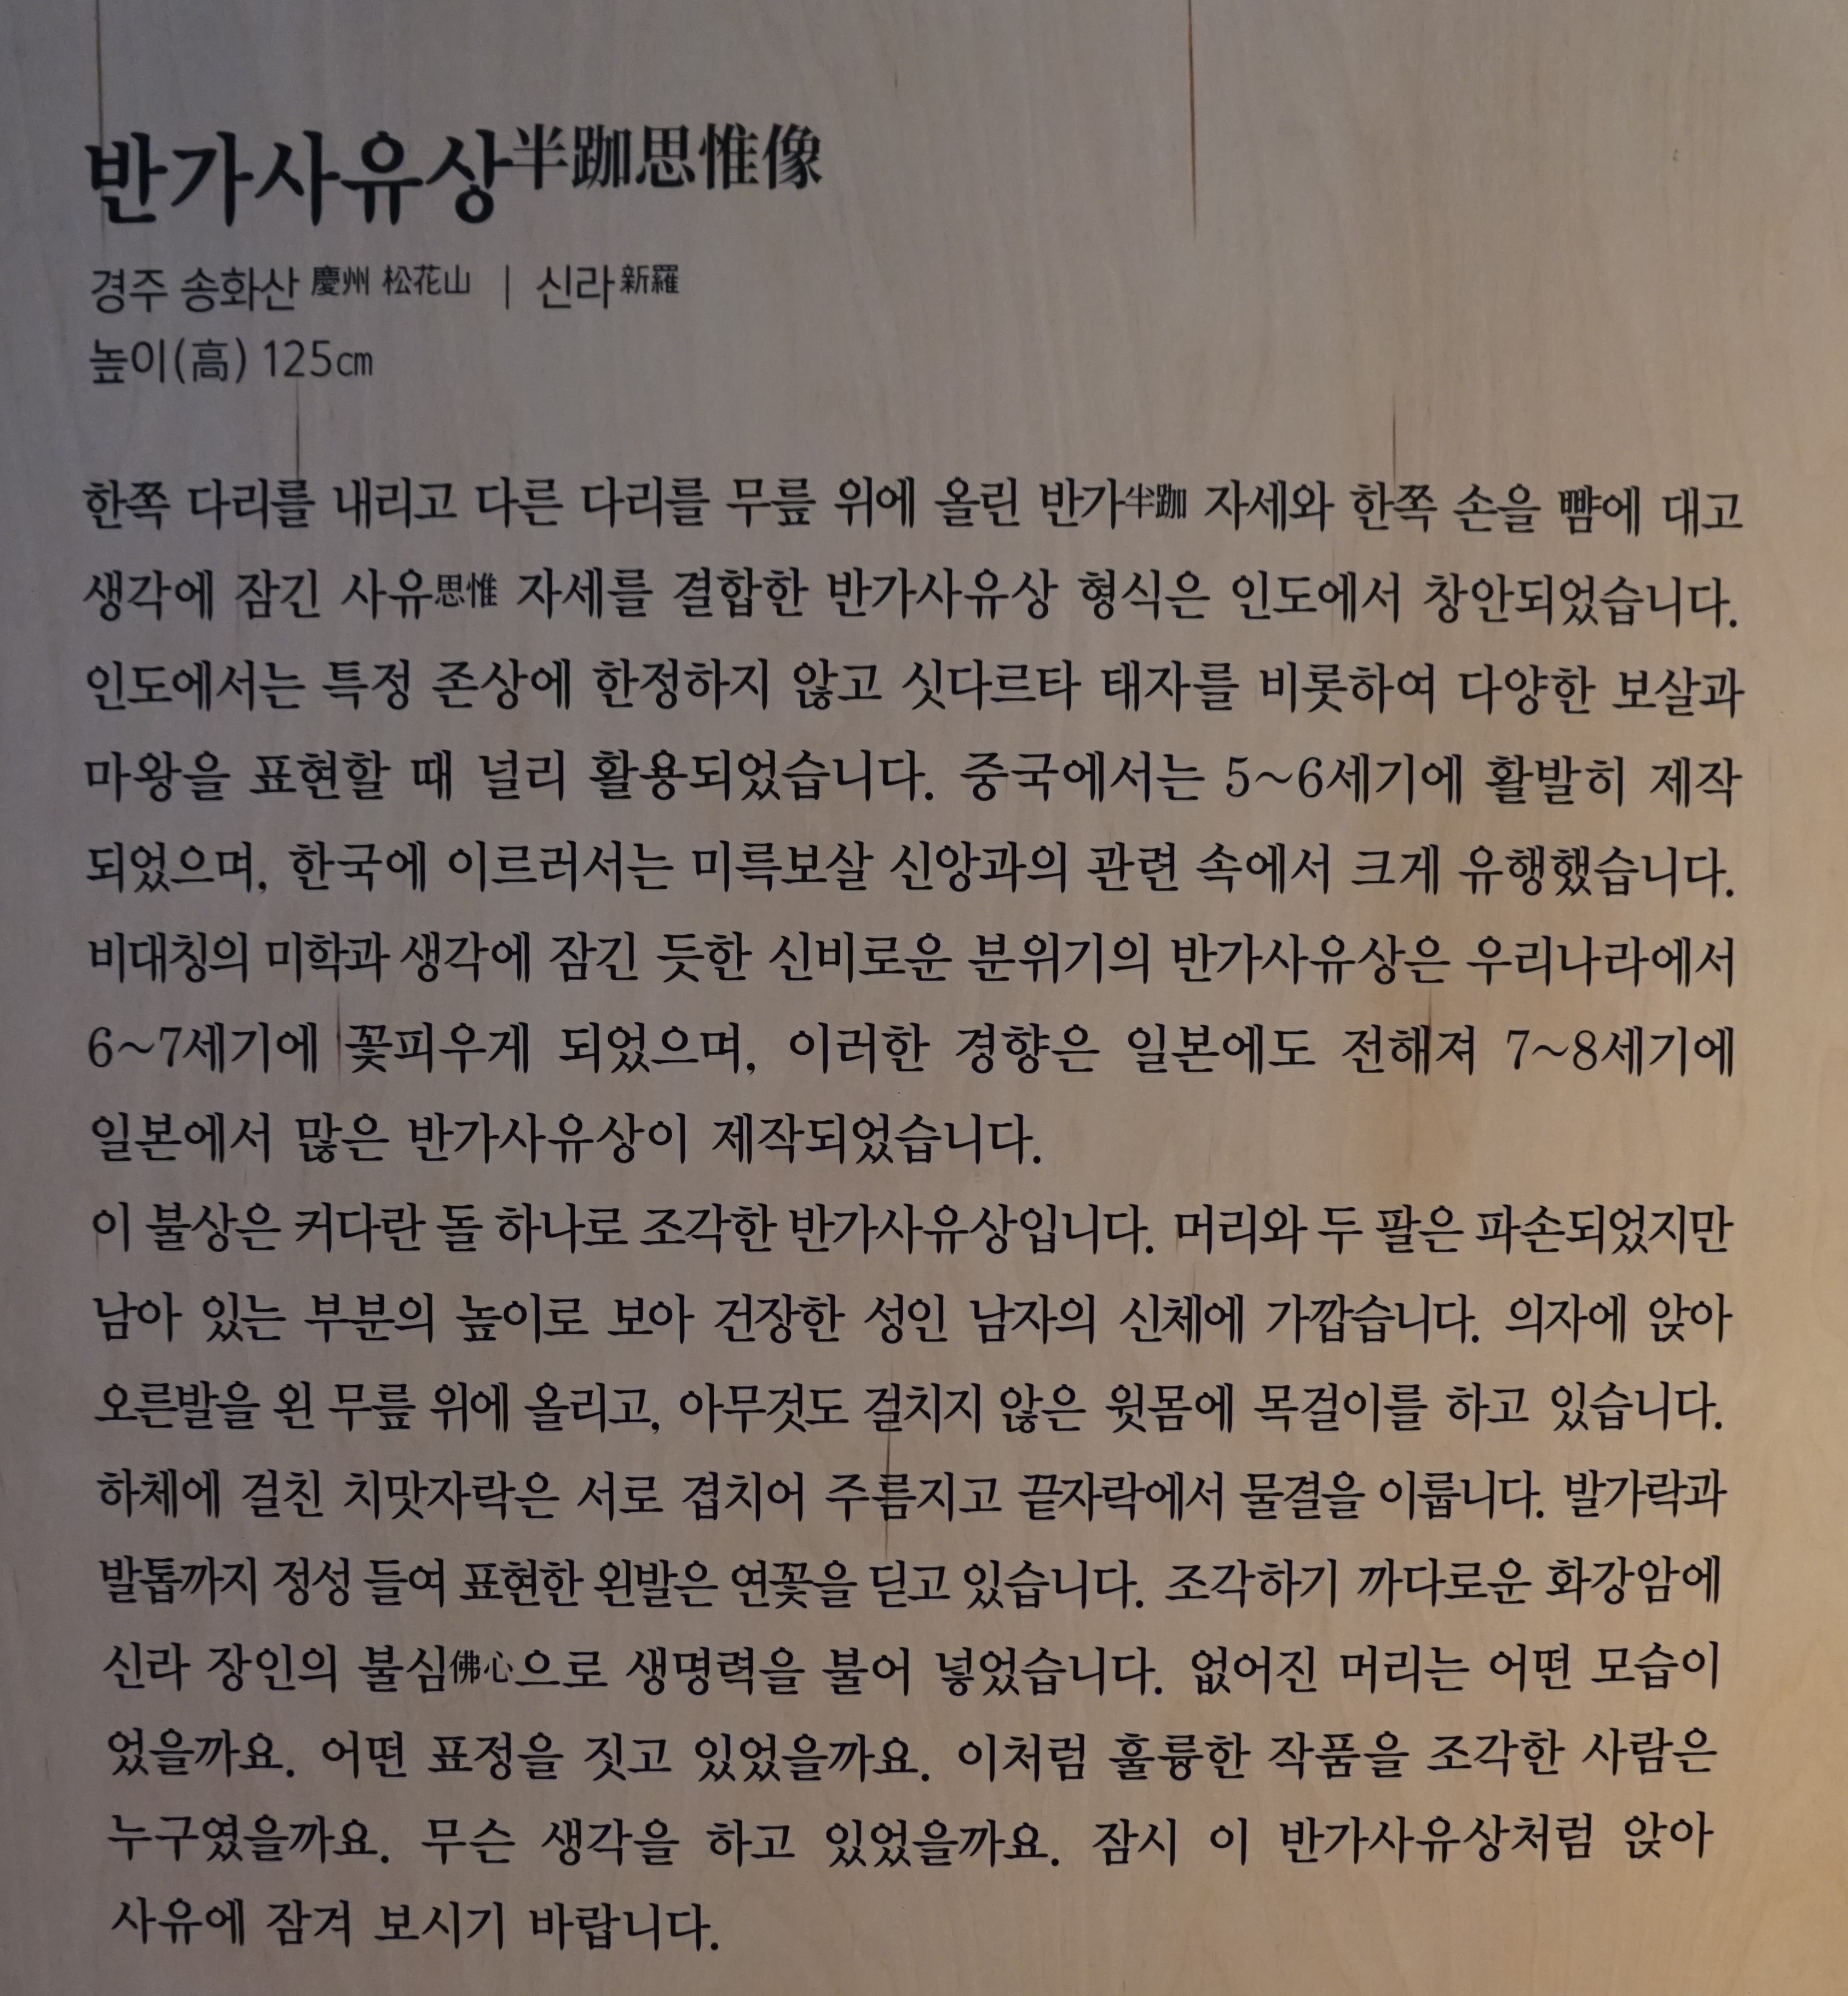 반가사유상半跏思惟像
경주 송화산 慶州 松花山 | 신라新羅
높이(高) 125㎝
한쪽 다리를 내리고 다른 다리를 무릎 위에 올린 반가半跏 자세와 한쪽 손을 뺨에 대고
생각에 잠긴 사유思惟 자세를 결합한 반가사유상 형식은 인도에서 창안되었습니다.
인도에서는 특정 존상에 한정하지 않고 싯다르타 태자를 비롯하여 다양한 보살과
마왕을 표현할 때 널리 활용되었습니다. 중국에서는 5~6세기에 활발히 제작
되었으며, 한국에 이르러서는 미륵보살 신앙과의 관련 속에서 크게 유행했습니다.
비대칭의 미학과 생각에 잠긴 듯한 신비로운 분위기의 반가사유상은 우리나라에서
6~7세기에 꽃피우게 되었으며, 이러한 경향은 일본에도 전해져 7~8세기에
일본에서 많은 반가사유상이 제작되었습니다.
이 불상은 커다란 돌 하나로 조각한 반가사유상입니다. 머리와 두 팔은 파손되었지만
남아 있는 부분의 높이로 보아 건장한 성인 남자의 신체에 가깝습니다. 의자에 앉아
오른발을 왼 무릎 위에 올리고, 아무것도 걸치지 않은 윗몸에 목걸이를 하고 있습니다.
하체에 걸친 치맛자락은 서로 겹치어 주름지고 끝자락에서 물결을 이룹니다. 발가락과
발톱까지 정성 들여 표현한 왼발은 연꽃을 딛고 있습니다. 조각하기 까다로운 화강암에
신라 장인의 불심佛心으로 생명력을 불어 넣었습니다. 없어진 머리는 어떤 모습이
었을까요. 어떤 표정을 짓고 있었을까요. 이처럼 훌륭한 작품을 조각한 사람은
누구였을까요. 무슨 생각을 하고 있었을까요. 잠시 이 반가사유상처럼 앉아
사유에 잠겨 보시기 바랍니다.